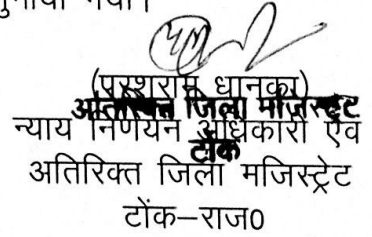 (परशराम धानका)
अतिरिक्त जिला मजिस्ट्रेट
न्याय निर्णयन अधिकारी एवं
टोंक
अतिरिक्त जिला मजिस्ट्रेट
टोंक–राज0